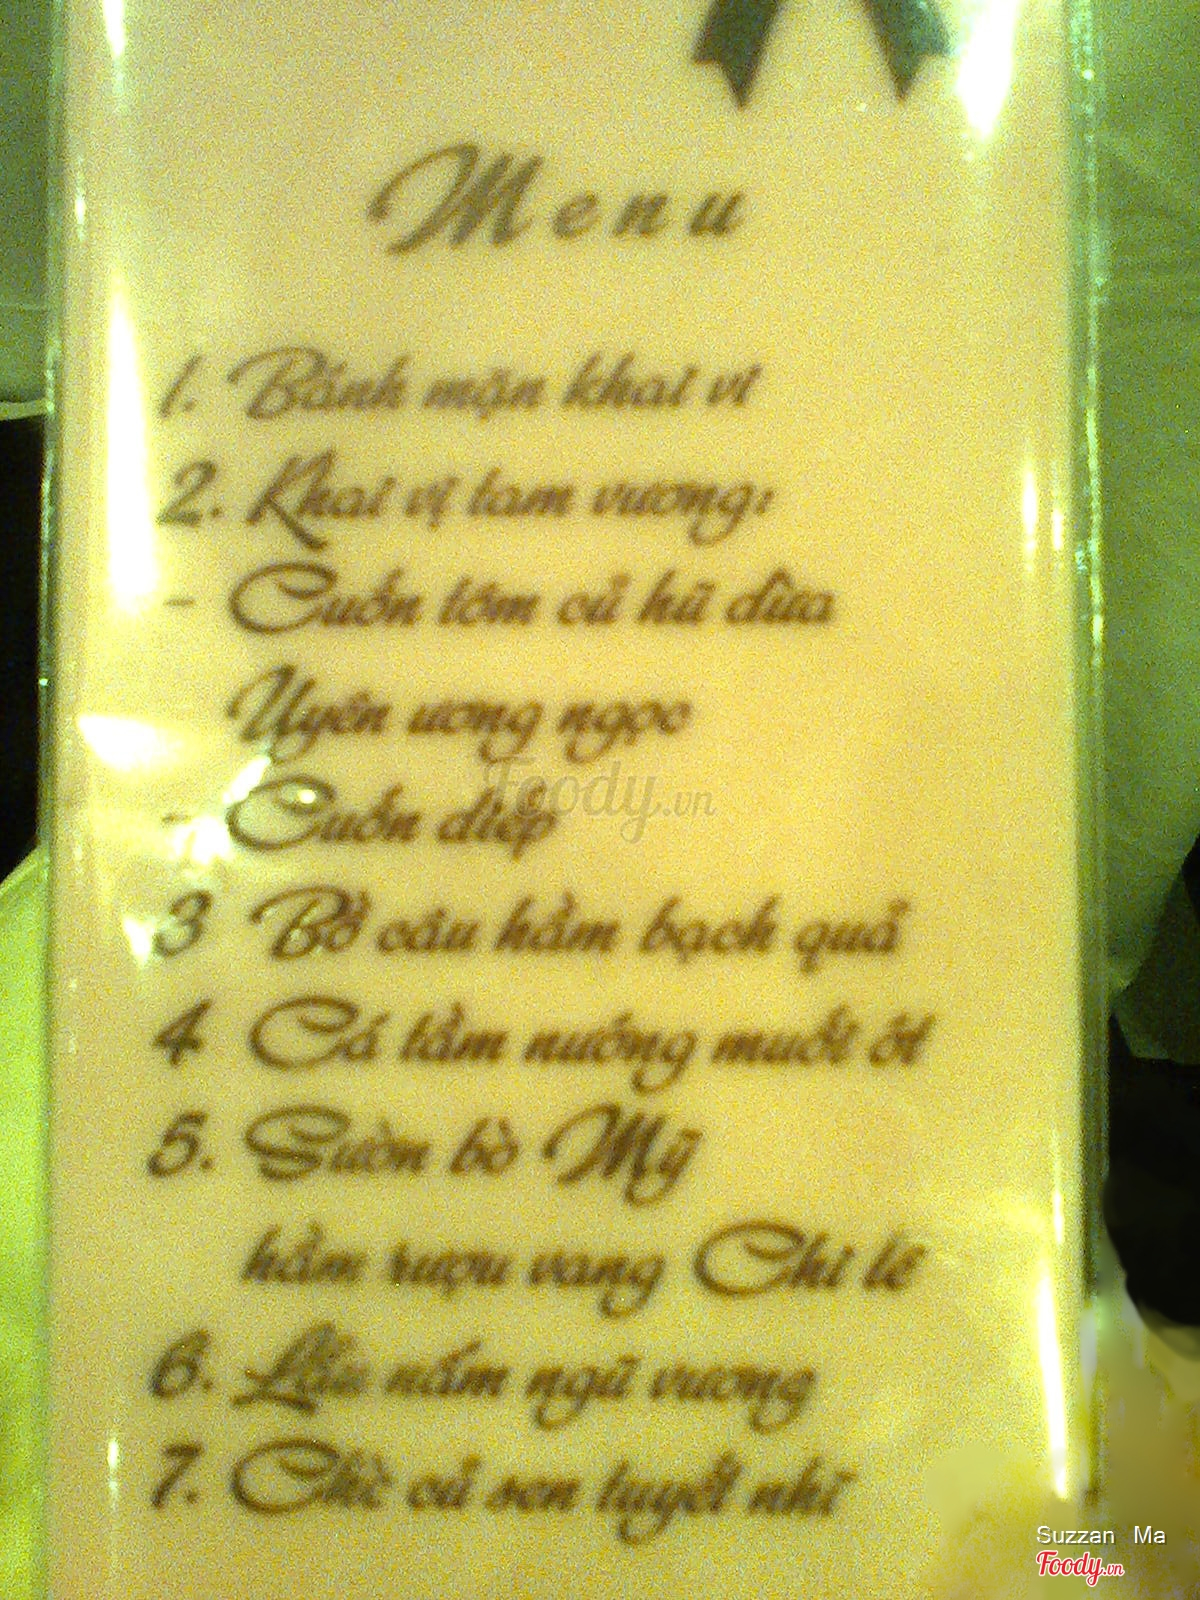 Menu
1. Bánh mặn khai vị
2. Khai vị tam vương:
- Cuốn tôm củ hũ dừa
Uyên ương ngọc
Foody.vn
- Cuốn diếp
3 Bồ câu hầm bạch quả
4 Cá tầm nướng muối ớt
5. Sườn bò Mỹ
hầm rượu vang Chi lê
6. Lẩu nấm ngũ vương
7. Chè củ sen tuyết nhĩ
Suzzan Ma
Foody.vn